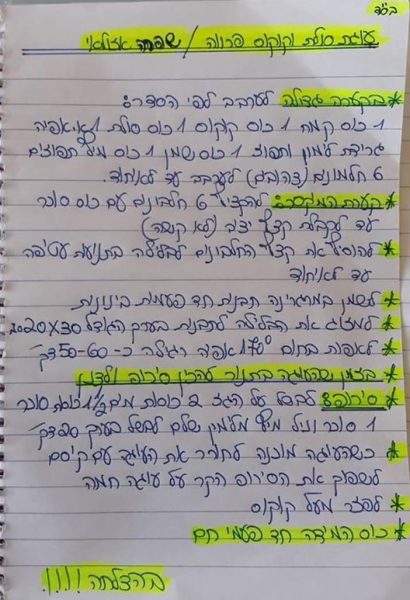 בס"ד
עוגת סולת וקוקוס פרווה / שפרה אזולאי
* בקערה גדולה לערבב לפי הסדר:
1 כוס קמח 1 כוס קוקוס 1 כוס סולת 1 א.אפיה
גרידת לימון ותפוז 1 כוס שמן 1 כוס מיץ תפוזים
6 חלמונים (צהובים) לערבב עד לאיחוד.
* קערת המיקסר: להקציף 6 חלבונים עם כוס סוכר
עד לקבלת קצף יציב (לא קשה)
* להוסיף את קצף החלבונים לבלילה בתנועות עטיפה
עד לאיחוד
* לשמן במרגרינה תבנית חד פעמית בינונית
* למזוג את הבלילה לתבנית בערך הגודל 20X30
* לאפות בחום 170° אפיה רגילה כ- 50-60 דק'
* בזמן שהעוגה בתנור להכין סירופ ולצנן
* סירופ: לבשל על הגז 2 כוסות מים 1/2 1 כוסות סוכר
1 סוכר וניל מיץ מלימון שלם לבשל בערך 20 דק'
* כשהעוגה מוכנה לחורר את העוגה עם קיסם
לשפוך את הסירופ הקר על עוגה חמה
* לפזר מעל קוקוס
* כוס המידה חד פעמי חם
בהצלחה !!!!